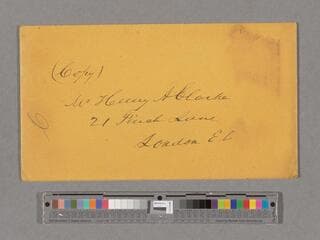 (Copy)
Mr Henry A Clarke
21 Finch Lane
London E C